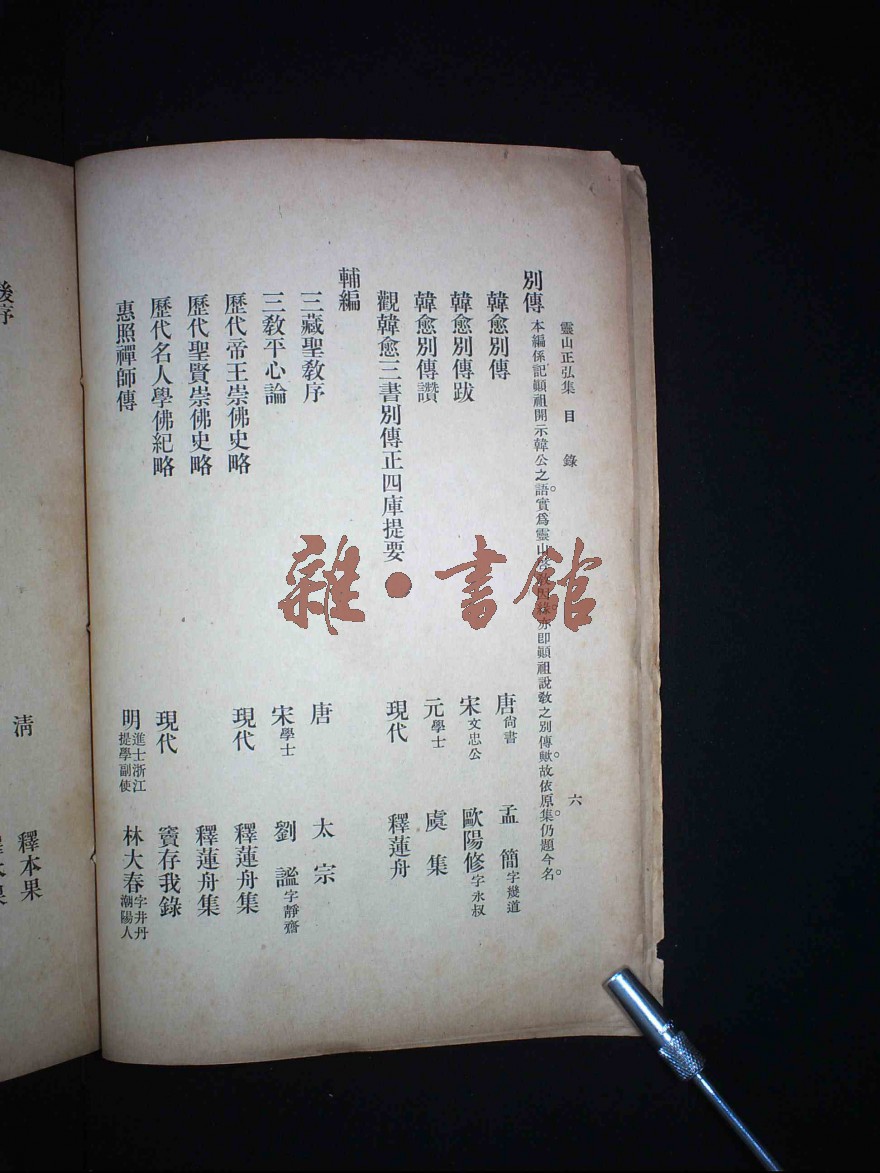 靈山正弘集 目 錄 六
別傳 本編係記顚祖開示韓公之語。實爲靈山亦即顚祖說敎之別傳歟。故依原集。仍題今名。
韓愈別傳 唐尙書 孟 簡字幾道
韓愈別傳跋 宋文忠公 歐陽修字永叔
韓愈別傳讚 元學士 虞 集
觀韓愈三書別傳正四庫提要 現代 釋蓮舟
輔編
三藏聖敎序 唐 太 宗
三敎平心論 宋學士 劉 謐字靜齋
歷代帝王崇佛史略 現代 釋蓮舟集
歷代聖賢崇佛史略 釋蓮舟集
歷代名人學佛紀略 現代 竇存我錄
惠照禪師傳 明進士浙江提學副使 林大春字井丹潮陽人
後序 淸 釋本果
雜·書館